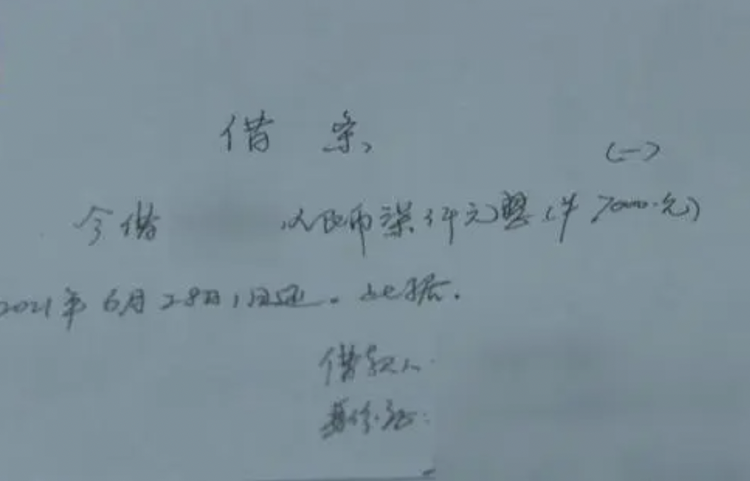 借条
(一)
今借 人民币柒仟元整(¥7000.元)
2021年6月28日归还。此据.
借款人
身份证: